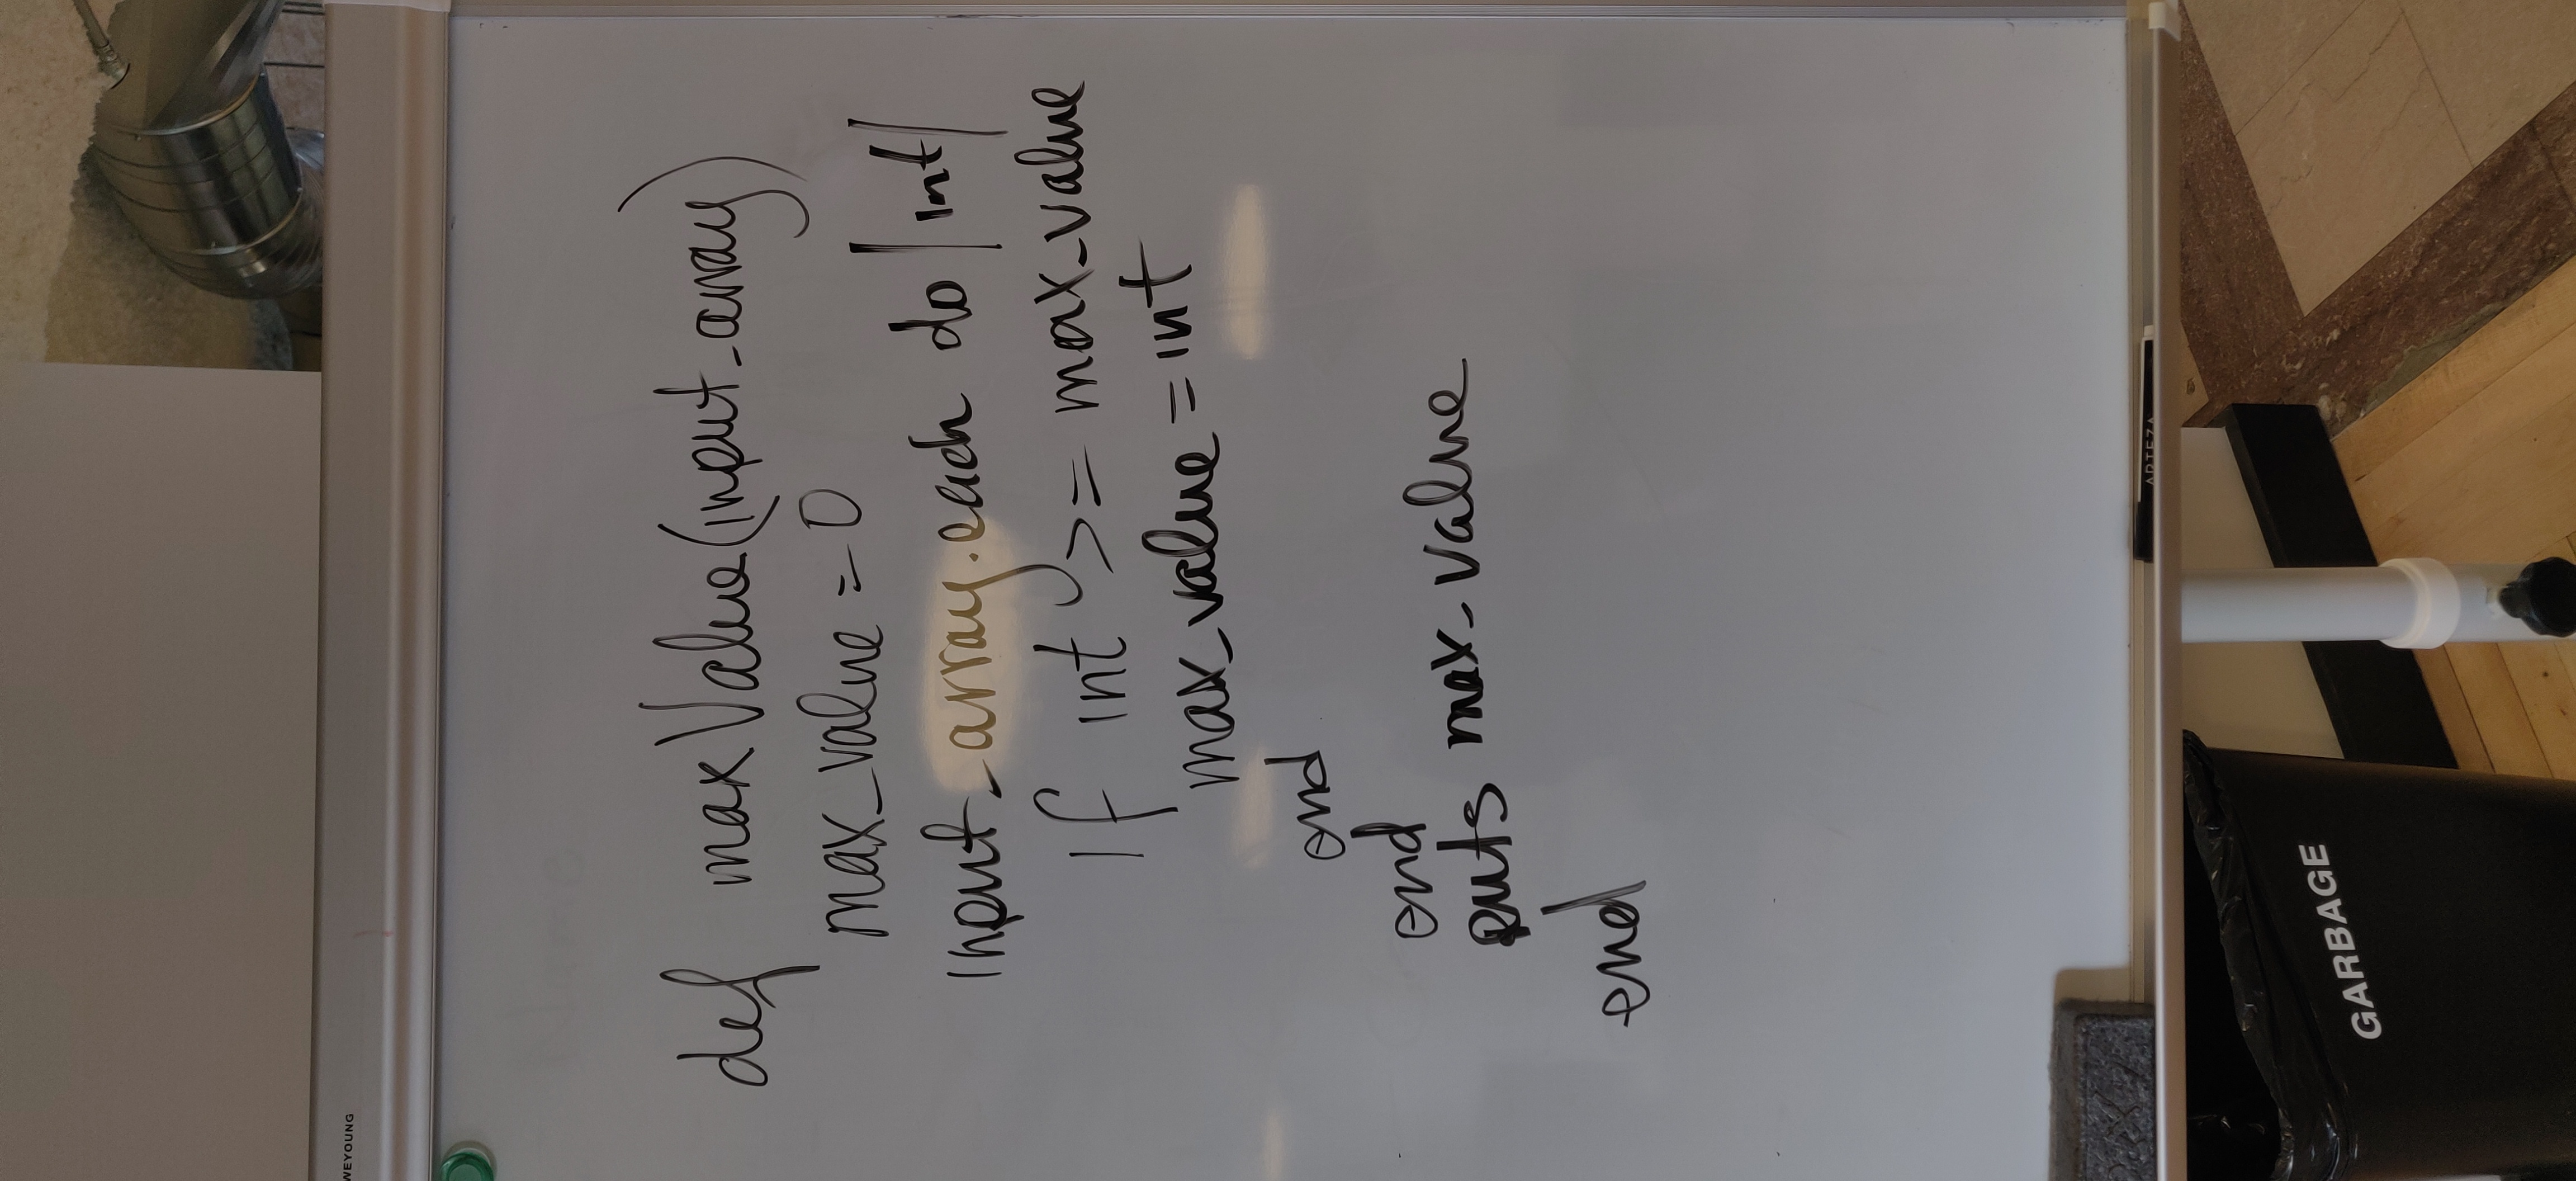 WEYOUNG
Name
def maxValue(input_array)
max_value = 0
input_array.each do |int|
if int >= max_value
max_value = int
end
end
puts max_value
end
ARTEZA
GARBAGE